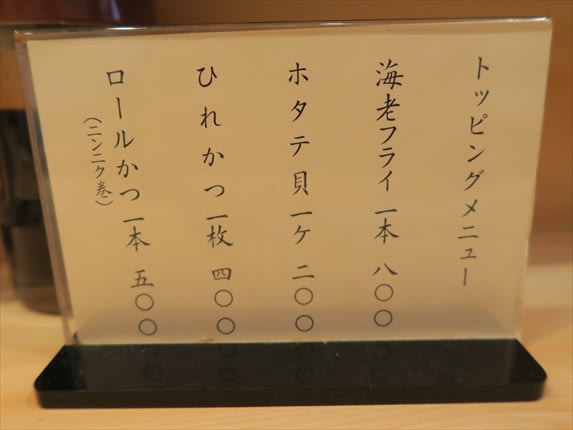 トッピングメニュー
海老フライ 一本 八〇〇
ホタテ貝 一ケ 二〇〇
ひれかつ 一枚 四〇〇
ロールかつ 一本 五〇〇
(ニンニク巻)